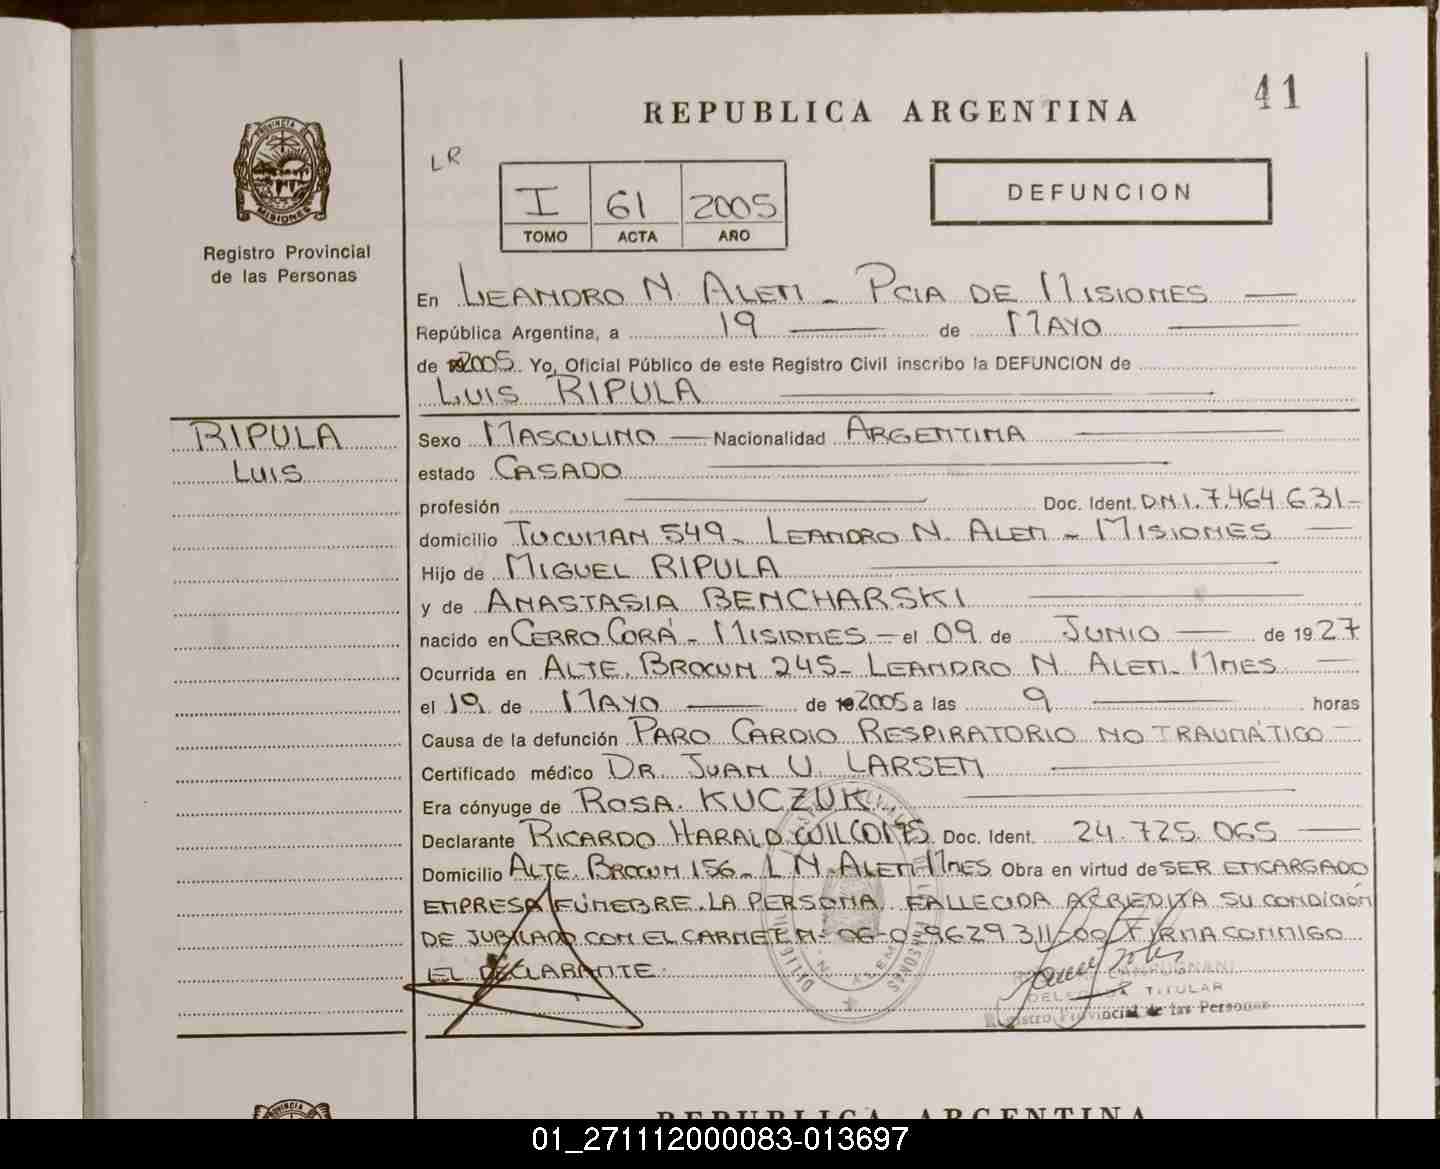 41
REPUBLICA ARGENTINA
LR
PROVINCIA
MISIONES
I 61 2005
TOMO ACTA AÑO
DEFUNCION
Registro Provincial
de las Personas
En LEANDRO N. ALEM - PCIA DE MISIONES
República Argentina, a 19 de MAYO
de 2005. Yo, Oficial Público de este Registro Civil inscribo la DEFUNCION de
LUIS RIPULA
RIPULA
LUIS
Sexo MASCULINO Nacionalidad ARGENTINA
estado CASADO
profesión Doc. Ident. D.N.I. 7.464.631-
domicilio TUCUMAN 549- LEANDRO N. ALEM - MISIONES
Hijo de MIGUEL RIPULA
y de ANASTASIA BENCHARSKI
nacido en CERRO CORÁ - MISIONES - el 09 de JUNIO de 1927
Ocurrida en ALTE. BROWN 245- LEANDRO N. ALEM- MNES
el 19 de MAYO de 2005 a las 9 horas
Causa de la defunción PARO CARDIO RESPIRATORIO NO TRAUMÁTICO
Certificado médico DR. JUAN U. LARSEN
Era cónyuge de ROSA KUCZUK
Declarante RICARDO HARALD Doc. Ident. 24.725.065
Domicilio ALTE. BROWN 156- L N. ALEM-MNES Obra en virtud de SER ENCARGADO
EMPRESA FÚNEBRE. LA PERSONA FALLECIDA ACREDITA SU CONDICIÓN
DE JUBILADO CON EL CARNET Nº 06-0-9629311-00 FIRMA CONMIGO
EL DECLARANTE.
TITULAR
Registro Provincial de las Personas
PROVINCIA
REPUBLICA ARGENTINA
01_271112000083-013697